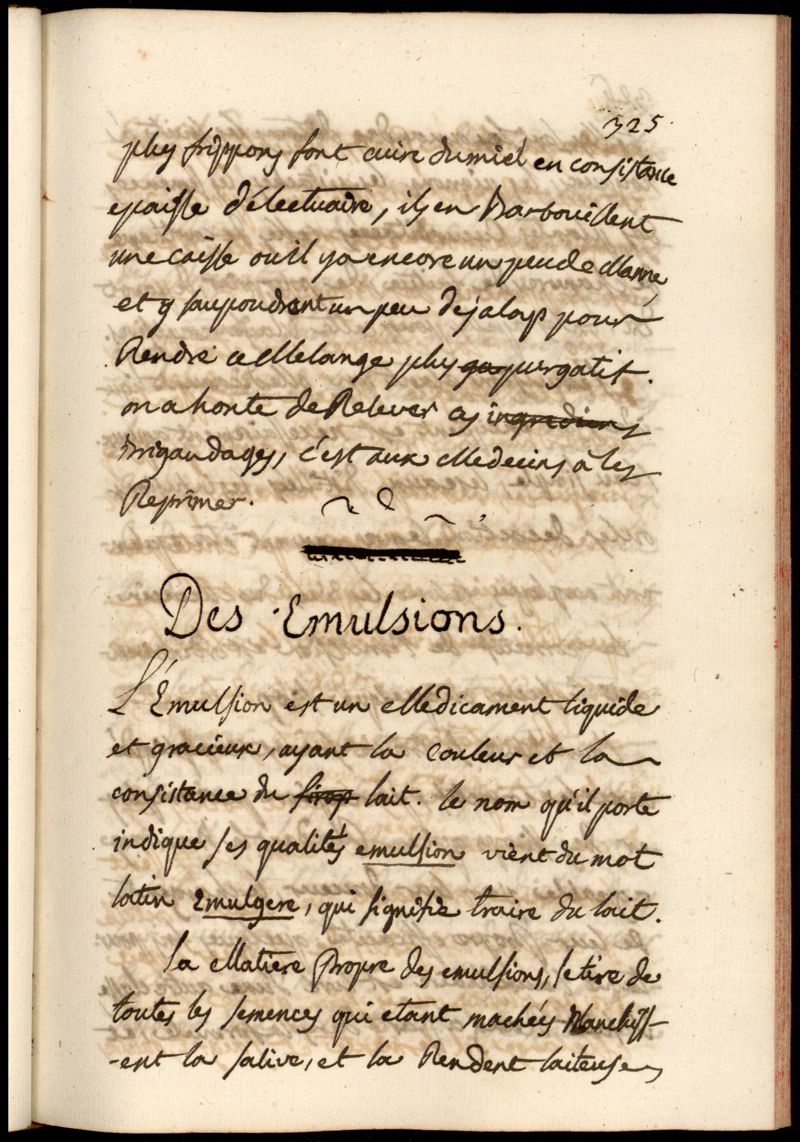 325.
plus frippons font cuire du miel en consistance
epaisse d'électuaire, ils en Barbouillent
une caisse ou il y a encore un peu de Manne,
et y saupoudrent un peu de jalap pour
Rendre ce Mélange plus qu purgatif.
on a honte de Relever ces ingrediens
Brigandages, c'est aux Medecins à les
Reprimer.
Des Emulsions.
L'Emulsion est un Médicament liquide
et gracieux, ayant la Couleur et la
consistance du sirop lait. le nom qu'il porte
indique ses qualités emulsion vient du mot
latin Emulgere, qui signifie traire du lait.
La Matiere propre des emulsions, se tire de
toutes les semences qui etant machées Blanchiss-
-ent la salive, et la Rendent laiteuse,